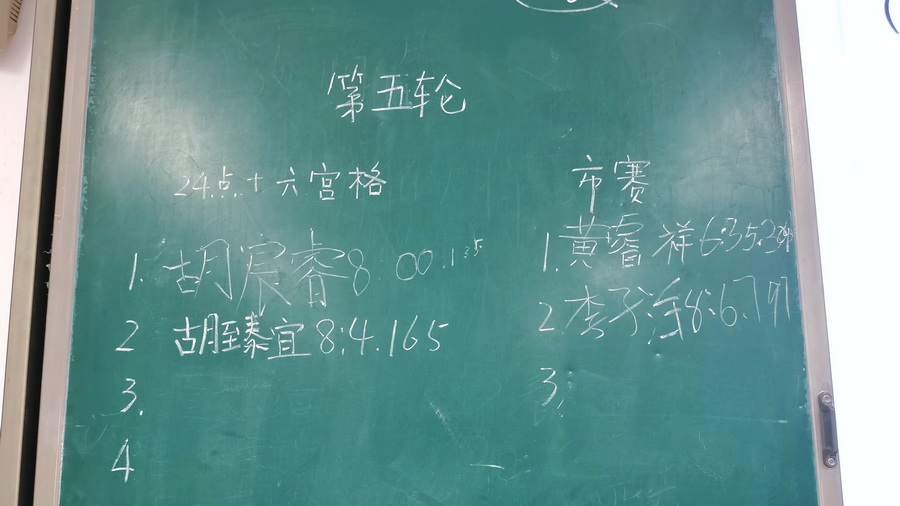 第五轮
24点+六宫格
1. 胡宸睿 8.00.135
2 胡至臻宜 8:4.165
3.
4
市赛
1. 黄睿祥 6:35.2
2. 李子 8:6.797
3.